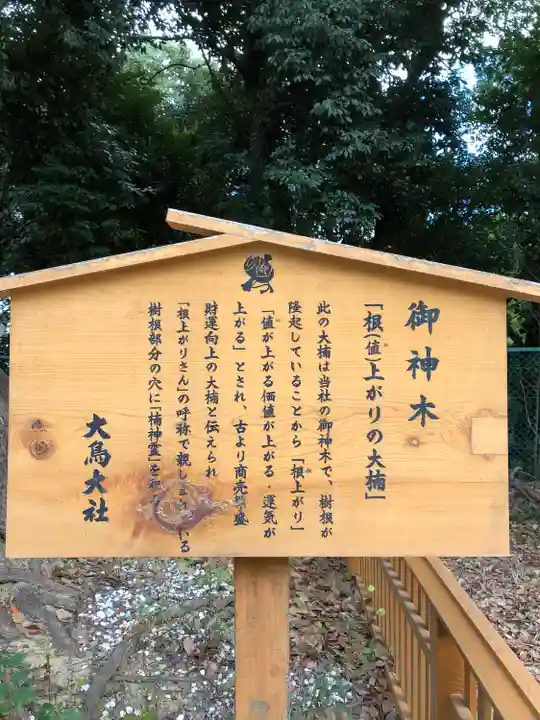 御神木
「根(値)上がりの大楠」
此の大楠は当社の御神木で、樹根が
隆起していることから「根上がり」
「値が上がる価値が上がる・運気が
上がる」とされ、古より商売 盛
財運向上の大楠と伝えられ
「根上がりさん」の呼称で親し いる
樹根部分の穴に「楠神霊」を
大鳥大社